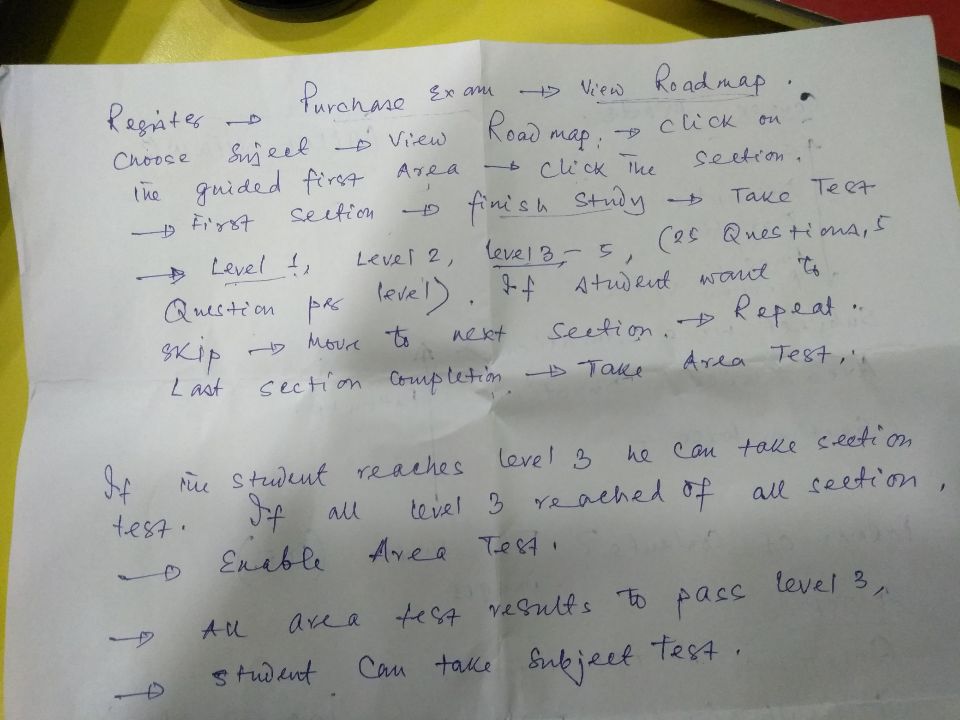 Register → Purchase Exam → View Roadmap.
Choose Suject → View Road map. → click on
The guided first Area → click The section.
→ First section → finish study → Take Test
→ Level 1, Level 2, level 3 - 5, (25 Questions, 5
Question per level). If student want to
skip → Move to next section. → Repeat.
Last section completion → Take Area Test.
If the student reaches level 3 he can take section
test. If all level 3 reached of all section,
→ Enable Area Test.
→ All area test results to pass level 3,
→ student can take Subject Test.